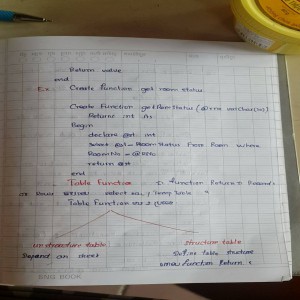 Return value
end
Ex. Create Function get room status
Create Function getRoomStatus (@rno varchar(10))
Returns int As
Begin
declare @st int
select @st = RoomStatus From Room where
RoomNo = @rno
return @st
end
Table Function
Function Return
select
Table Function are 2 types
structure table
structure table
Depend on select
Define table structure
Function Return